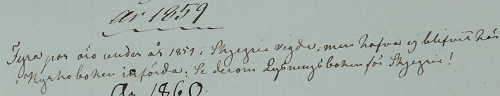 År 1859
Fyra par äro under år 1859 i Skegrie vigde, men hafva ej blifvit här i
Kyrkoboken införda; Se derom Lysningsboken för Skegrie!
År 1860.